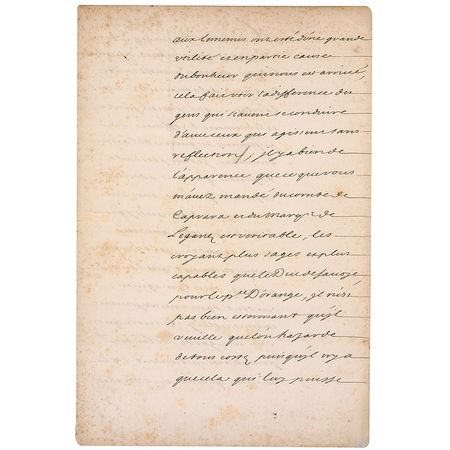 aux Ennemis ont esté d'une grande
vtilité et en partie cause
du bonheur qui nous est arrivé,
cela fait voir la difference des
gens qui scauent se conduire
d'auec ceux qui agissent sans
reflection, il y a bien de
l'apparence que ce que vous
m'auez mandé du comte de
Caprara et du Marq.s de
Leganez est veritable, les
croyant plus sages et plus
capables que le Duc de Sauoye
pour le p.ce D'orange, il n'est
pas bien estonnant qu'il
veuille que l'on hazarde
de tous costez puis qu'il n'y a
que cela qui luy puisse